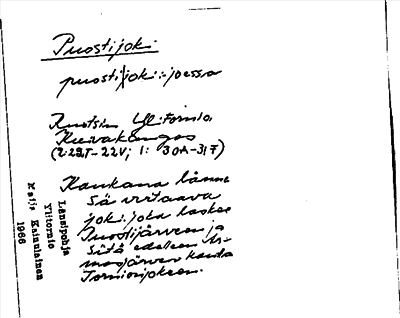 Puostijoki
puostijoki: -joessa
Ruotsin Yli-Tornio,
Kuivakangas
(2:22T-22V; 1: 30A-31F)
Kaukana lännes-
sä virtaava
joki, joka laskee
Puostijärveen ja
siitä edelleen Ar-
masjärven kautta
Tornionjokeen.
Länsipohja
Ylitornio
Maija Kainulainen
1966